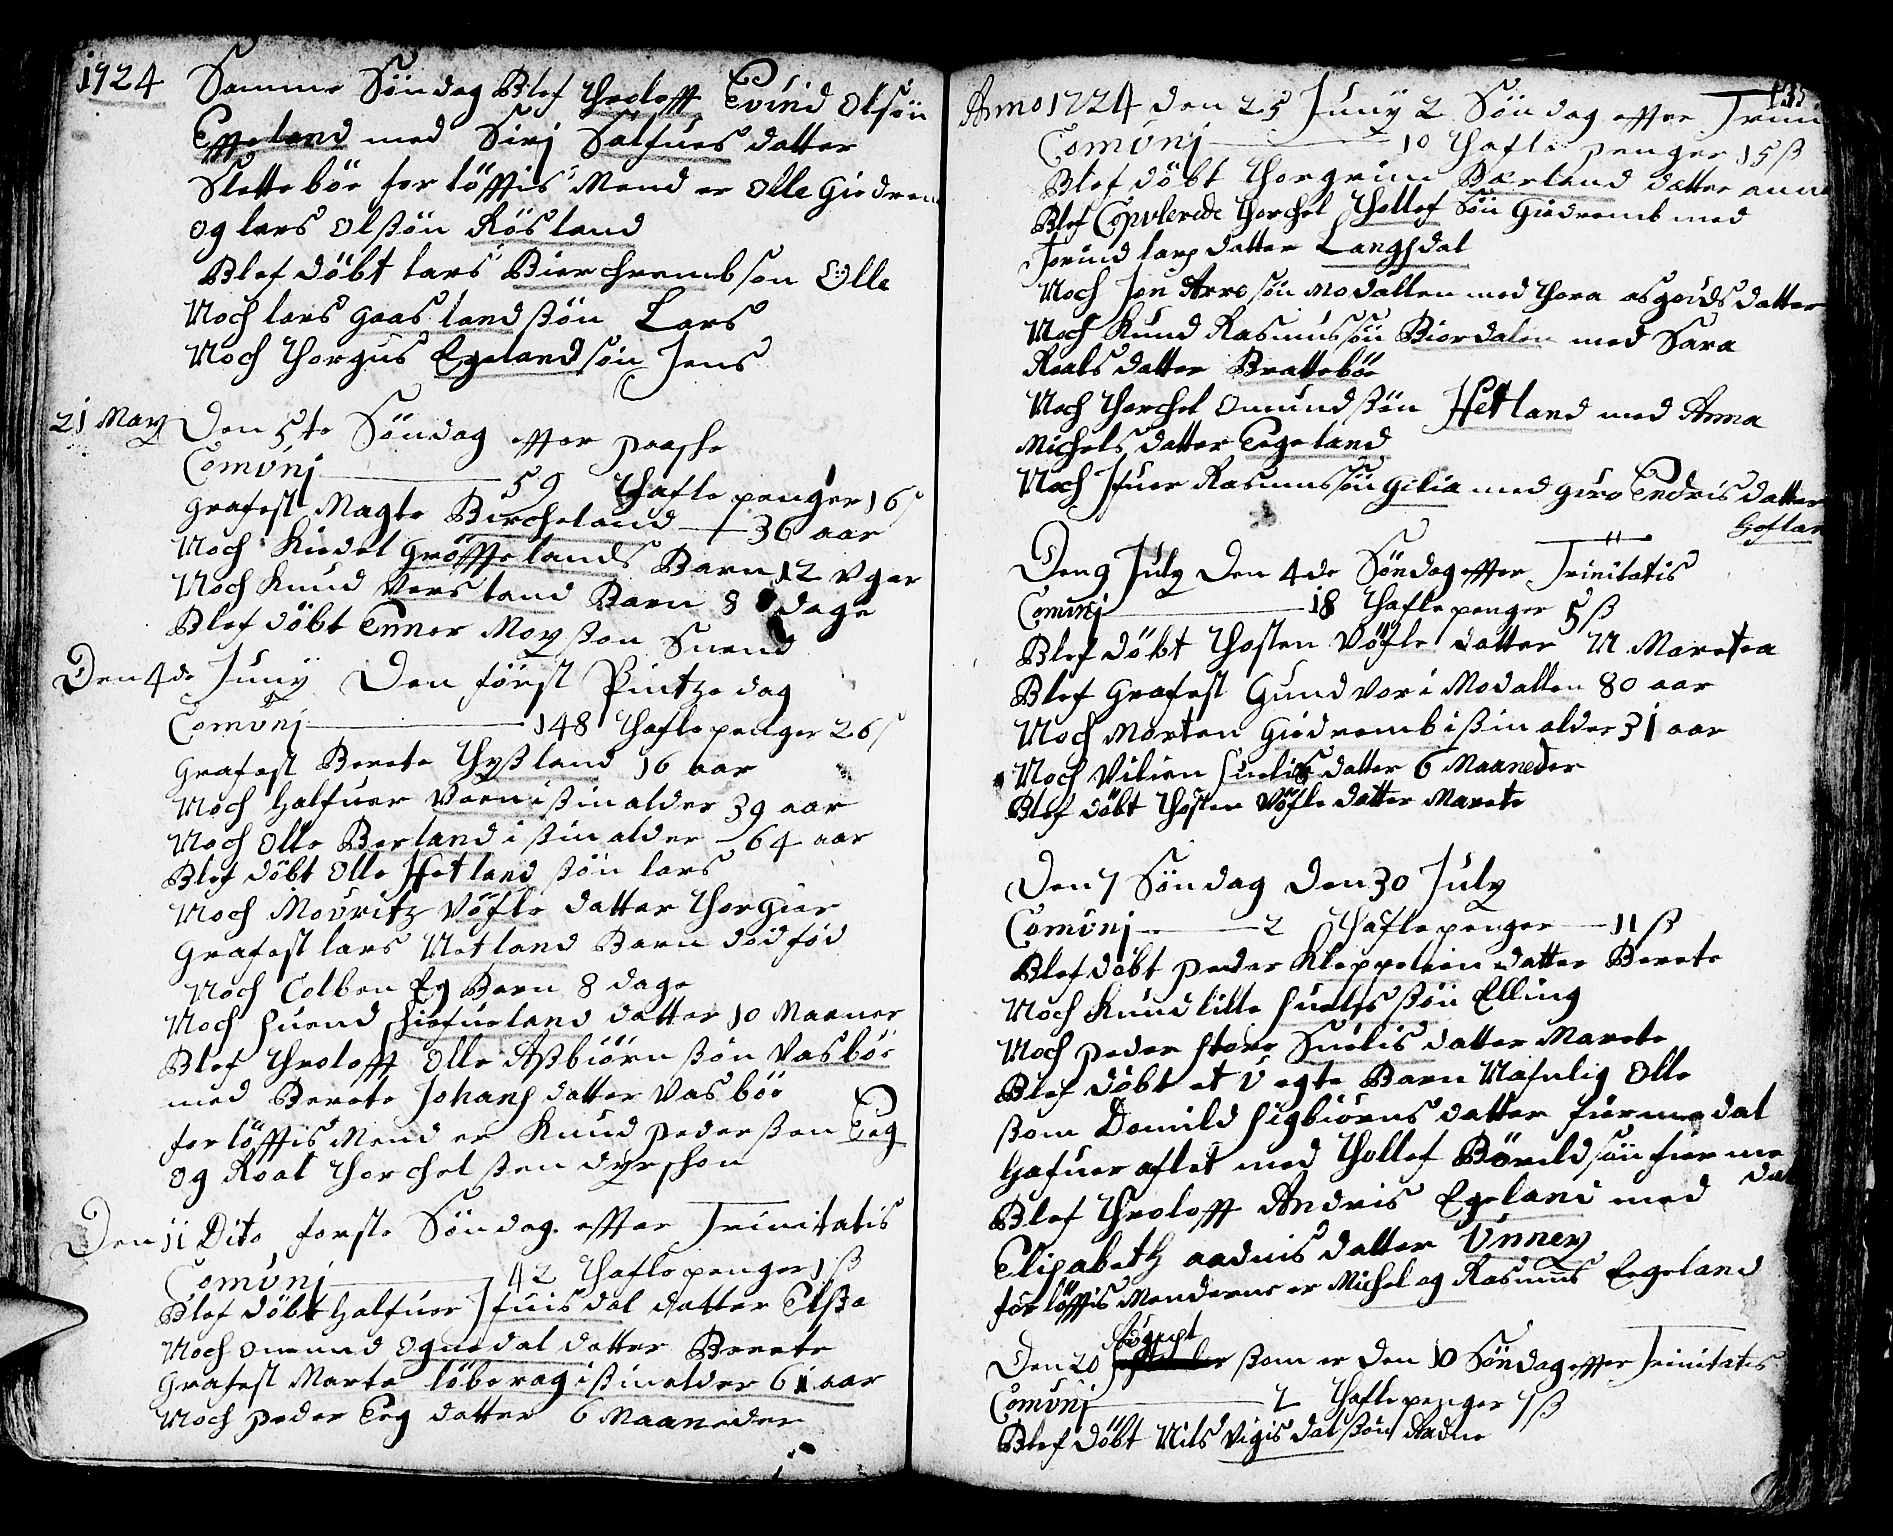 1724 Samme Söndag Blef throloff Evind olsön
Egeland med Sirj Salfues datter
Sletteböe forlöffis Mend er olle Giedrem
og lars olßön Rösland
Blef döbt lars Bierchremb son Olle
Noch lars gaasland ßön Lars
Noch thorgus Egeland sön Jens
21 May Den 5te Söndag effter paaske
Comunj 59 thafle penger 16 s
Grafest Magte Bircheland 36 aar
Noch Kiedel Gröffelands Barn 12 Vger
Noch Knud Versland Barn 8 dage
Blef döbt Enner Moy ßon Suend
Den 4de Juny Den först Pintzedag
Comunj 148 thaflepenger 26 s
Grafest Berete thyßland 16 aar
Noch Halfuer Veen i ßin alder 39 aar
Noch Olle Berland i ßin alder 64 aar
Blef döbt Olle Hetland ßön lars
Noch Mouritz Vöfle datter thorgier
Grafest lars Netland Barn dödföd
Noch Colben Eg Barn 8 dage
Noch Suend datter 10 Maaner
Blef throloff Olle Aßbiörn ßön Vasböe
med Berete Johans datter Vasböe
forlöffis Mend er Knud peder ßen Eeg
og Roal thorchel ßen dyrskon
Den 11 Dito forste Söndag effter Trinitatis
Comunj 42 thaflepenger 1 ß
Blef döbt Halfuer Jfuisdal datter Elßa
Noch omund Ognedal datter Berete
Grafest Marta löberag i ßin alder 61 aar
Noch peder Eeg datter 6 Maaneder
135
Anno 1724 den 25 Juny 2 Söndag effter Trini
Comunj 10 thafle penger 15 ß
Blef döbt thorgrim Bærland datter anne
Blef Copulerede thorchel thollef Sön Giedremb med
Jorind lars datter Langhdal
Noch Jon Arre sön Modallen med thora asgouds datter
Noch Knud Rasmussön Biordalen med Sara
Roals datter Bratteböe
Noch thorchel omund ßön Hetland med Anna
Michels datter Eegeland
Noch Jfuer Rasmussön Gilia med guro Endris datter
Den 9 July Den 4de Söndag effter Trinitatis
Comunj 18 thaflepenger 5 ß
Blef döbt thosten Vöfle datter N Maretea
Blef Grafest Gundvor i Modallen 80 aar
Noch Morten Giedremb i ßin alder 31 aar
Noch Vilien Suelis datter 6 Maaneder
Blef döbt thosten Vöfle datter Marete
Den 7 Söndag Den 30 July
Comunj 2 thaflepenger 11 ß
Blef döbt peder Kleppelien datter Berete
Noch Knud lille Suelis ßön Elling
Noch peder store Suelis datter Marete
Blef döbt et Vegte Barn Nafnlig Olle
ßom Domild Sigbiörns datter furmedal
Hafuer aflet med thollef Böreld sön fuerme
dal
Blef throloff Andris Egeland med
Elisabeth aadnis datter Vnney
forlöffis Menderne er Michel og Rasmus Eegeland
August
Den 20 ßom er den 10 Söndag effter Trinitatis
Comunj 2 thaflepenger 7 ß
Blef döbt Nils Vigisdal ßön Aadne